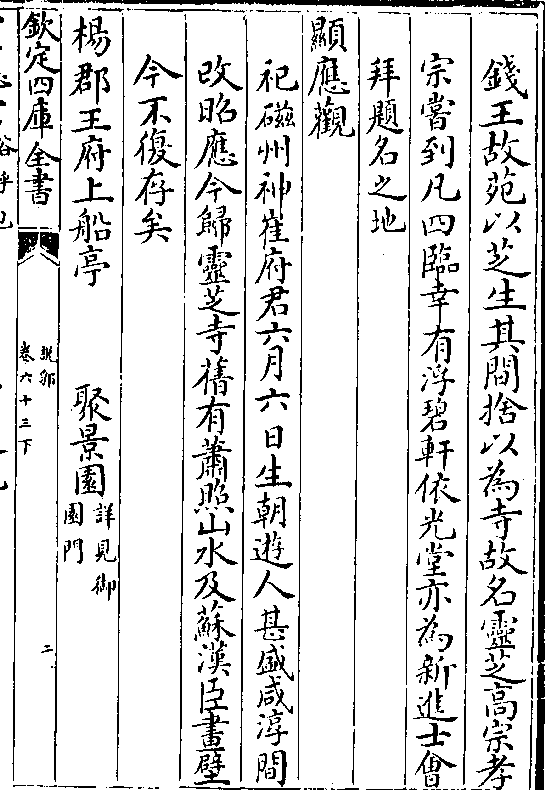 錢王故苑以芝生其間捨以為寺故名靈芝高宗孝
宗嘗到凡四臨幸有浮碧軒依光堂亦為新進士會
拜題名之地
顯應觀
祀磁州神崔府君六月六日生朝遊人甚盛咸淳間
改昭應今歸靈芝寺舊有蕭照山水及蘇漢臣畫壁
今不復存矣
楊郡王府上船亭 聚景園 詳見御
園門
欽定四庫全書
說郛
卷六十三下
二